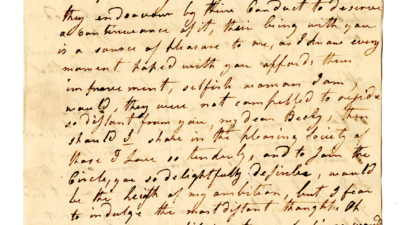 they endeavour by thire Conduct to deserve
a Continuance of it, their being with you
is a source of pleasure to me, as I know every
moment pased with you affords them
improvement, selfish woman I am,
would, they were not compelled to reside
so distant from you, my dear Becky, then
should I share in the pleasing Society of
those I love so tenderly, and to Join the
Circle, you so delightfully describe, would
be the heigth of my ambition, but I fear
to indulge the most distant thought, Oh